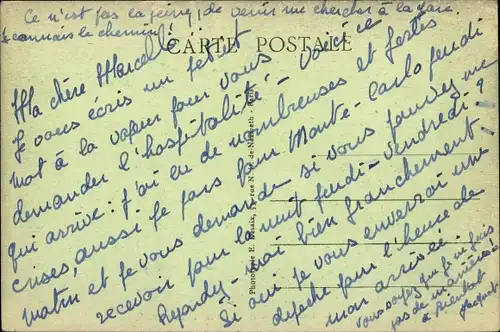 Ce n'est pas la peine de venir me chercher à la gare.
connais le chemin
CARTE POSTALE
Ma chère Marcelle
Je vous écris un petit
mot à la vapeur pour vous
demander l'hospitalité - voici ce
qui arrive : j'ai eu de nombreuses et fortes
crises, aussi je pars pour Monte-Carlo jeudi
matin et je vous demande si vous pouvez me
recevoir pour la nuit jeudi-vendredi ?
Répondez-moi bien franchement !
Si oui je vous enverrai une
dépêche pour l'heure de
mon arrivée.
Vous voyez que je ne fais
pas de manières !
à bientôt